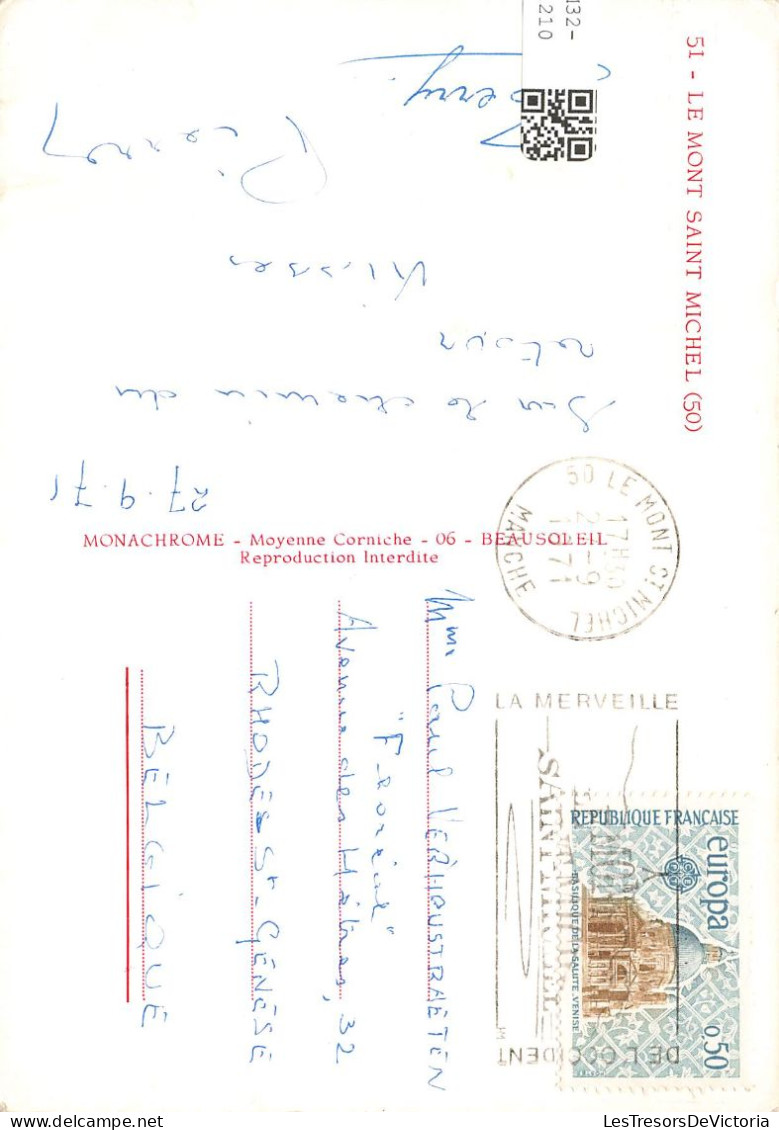 132-
210
51 - LE MONT SAINT MICHEL (50)
27.9.71
Sur le chemin du
retour
Kisses
MONACHROME - Moyenne Corniche - 06 - BEAUSOLEIL
Reproduction Interdite
50 LE MONT ST MICHEL
17H30
MANCHE
LA MERVEILLE
DE L'OCCIDENT
REPUBLIQUE FRANÇAISE
europa
BASILIQUE DE LA SALUTE.VENISE
0,50
Mme Paul VERHOUSTRAETEN
Avenue des Hêtres, 32
RHODE-St-GENÈSE
BELGIQUE
LesTresorsDeVictoria.com